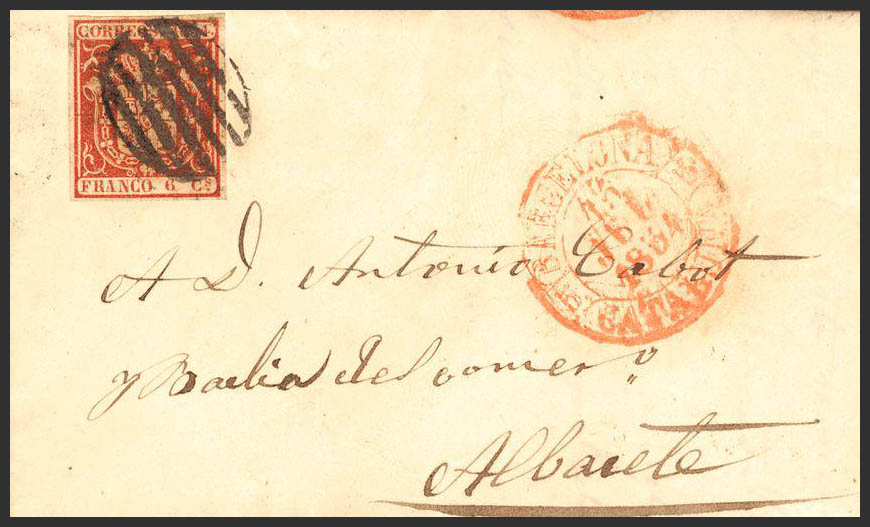 CORREOS
FRANCO 6 Cs
BARCELONA
1854
CATAL
A D. Antonio Cabot
y Badia del comero
Albacete